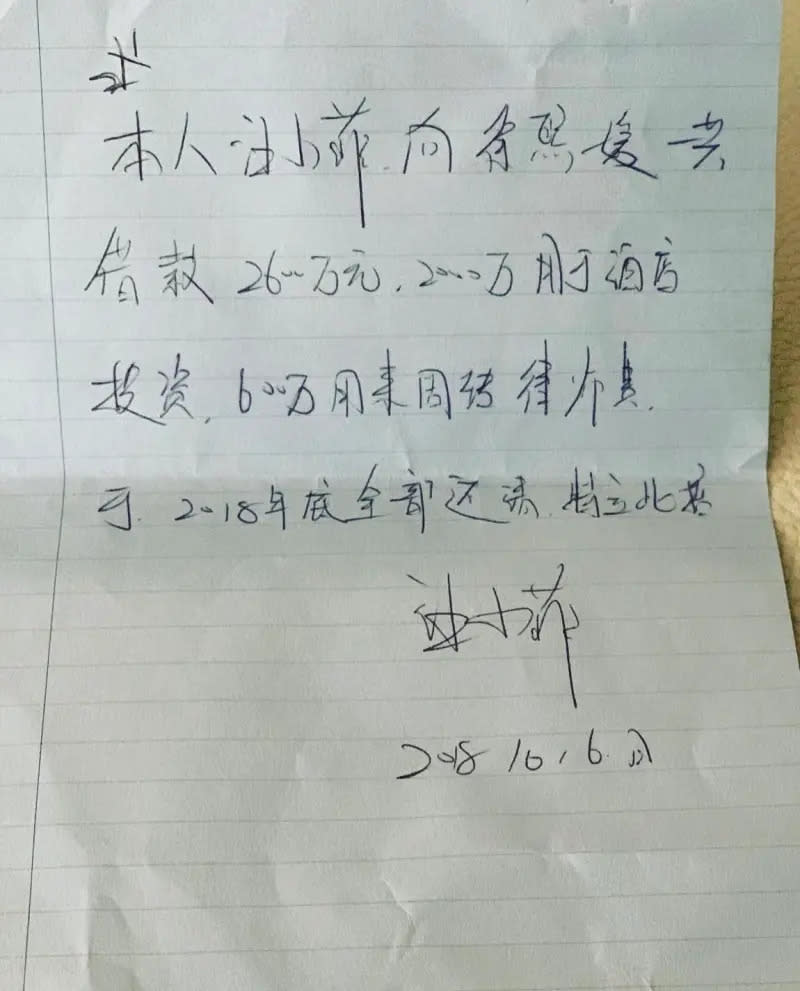 本人汪小菲 向徐熙媛共
借款 2600万元, 2000万用于酒店
投资, 600万用来周转律师费.
于 2018年底全部还清. 特立此据
汪小菲
2018 10, 6.